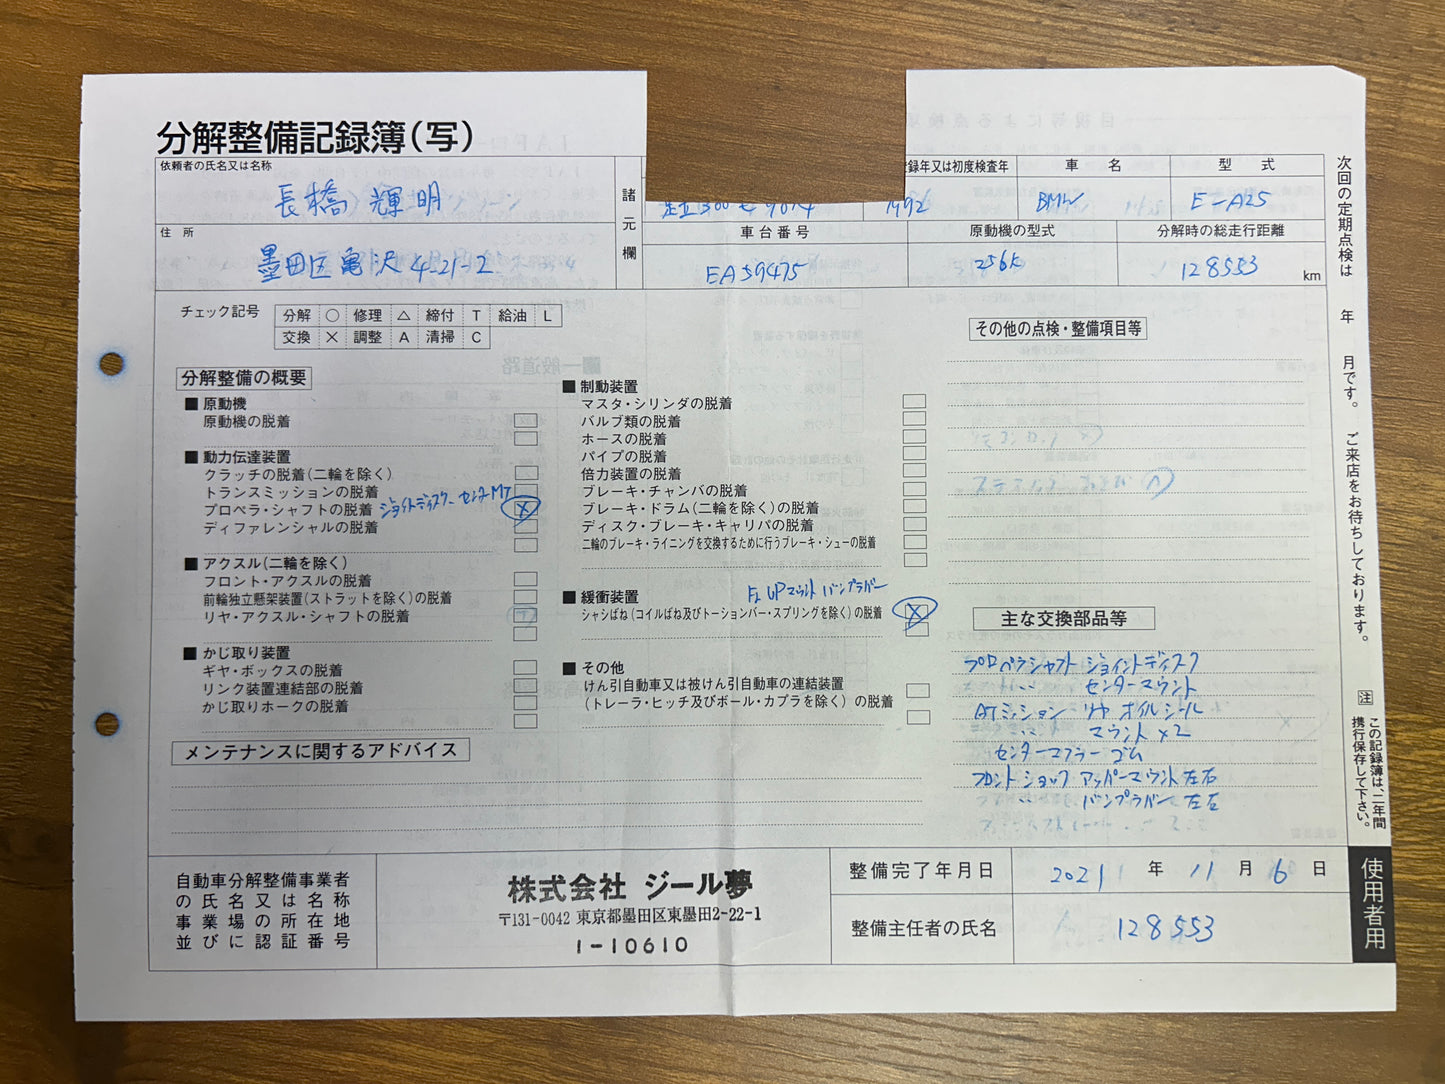 分解整備記録簿(写)
依頼者の氏名又は名称
長橋 輝明
住 所
墨田区亀沢4-21-2
諸元欄
録年又は初度検査年
1992
車 名
BMW
型 式
E-A25
車台番号
EA59475
原動機の型式
256K
分解時の総走行距離
128553 km
チェック記号
分解 ○ 修理 △ 締付 T 給油 L
交換 × 調整 A 清掃 C
分解整備の概要
■ 原動機
原動機の脱着
■ 動力伝達装置
クラッチの脱着(二輪を除く)
トランスミッションの脱着
プロペラ・シャフトの脱着 ジョイントディスク、センターMT ×
ディファレンシャルの脱着
■ アクスル(二輪を除く)
フロント・アクスルの脱着
前輪独立懸架装置(ストラットを除く)の脱着
リヤ・アクスル・シャフトの脱着
■ かじ取り装置
ギヤ・ボックスの脱着
リンク装置連結部の脱着
かじ取りホークの脱着
■ 制動装置
マスタ・シリンダの脱着
バルブ類の脱着
ホースの脱着
パイプの脱着
倍力装置の脱着
ブレーキ・チャンバの脱着
ブレーキ・ドラム(二輪を除く)の脱着
ディスク・ブレーキ・キャリパの脱着
二輪のブレーキ・ライニングを交換するために行うブレーキ・シューの脱着
■ 緩衝装置
UPマウント バンプラバー
シャシばね(コイルばね及びトーションバー・スプリングを除く)の脱着 ×
■ その他
けん引自動車又は被けん引自動車の連結装置
(トレーラ・ヒッチ及びボール・カプラを除く)の脱着
その他の点検・整備項目等
主な交換部品等
プロペラシャフト ジョイントディスク
〃 センターマウント
ATミッション リヤ オイルシール
〃 マウント ×2
センターマフラー ゴム
フロントショック アッパーマウント左右
〃 バンプラバー 左右
メンテナンスに関するアドバイス
自動車分解整備事業者
の氏名又は名称
事業場の所在地
並びに認証番号
株式会社 ジール夢
〒131-0042 東京都墨田区東墨田2-22-1
1-10610
整備完了年月日
2021 年 11 月 6 日
整備主任者の氏名
128553
次回の定期点検は 年 月です。 ご来店をお待ちしております。
注 この記録簿は、二年間
携行保存して下さい。
使用者用